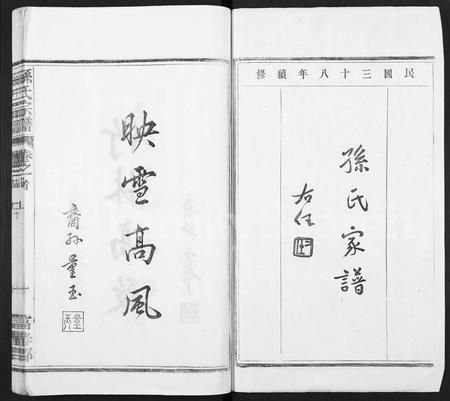 民國三十八年續修
孫氏家譜
右任
映雪高風
裔孫量玉
孫氏宗譜
卷之首
富春郡